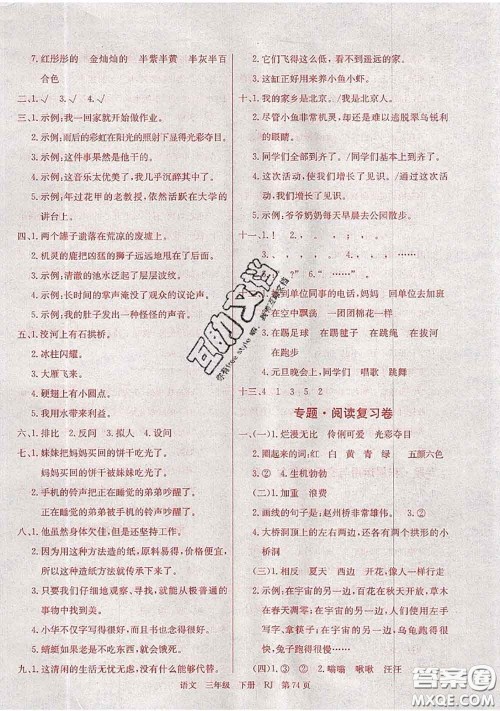 7. 红彤彤的　金灿灿的　半紫半黄　半灰半百
合色
二、1.√　3.√　4.√
三、1. 示例：我一回家就开始做作业。
2. 示例：雨后的彩虹在阳光的照射下显得光彩夺目。
3. 示例：这件事果然是他干。
4. 示例：这音乐太优美了，我几乎沉醉其中了。
5. 示例：年过花甲的老教授，依然活跃在大学的
讲台上。
四、1. 两个罐子遗落在荒凉的废墟上。
2. 机灵的鹿把凶猛的狮子远远地甩在了后面。
3. 示例：清澈的小溪缓缓地流淌着。
4. 示例：长时间的掌声淹没了观众的议论声。
5. 示例：我的肚子发出一种怪怪的声音。
五、1. 洨河上有石拱桥。
2. 冰柱闪耀。
3. 大雁飞来。
4. 硬翅上有小圆点。
5. 我用水带来利益。
六、1. 排比　2. 反问　3. 拟人　4. 设问
七、1. 妹妹把妈妈买回的饼干吃光了。
妈妈买回的饼干被妹妹吃光了。
2. 手机的铃声把正在睡觉的弟弟吵醒了。
正在睡觉的弟弟被手机的铃声吵醒了。
八、1. 他虽然身体欠佳，但是一直坚持工作。
2. 因为用这种方法造的纸，原料易得，价格便
宜，所以这种造纸方法被传承下来了。
3. 只要我们仔细地观察、寻找，就能从极普通的
事物中找到美。
4. 小华不仅字写得好，而且画也画得好。
5. 蜻蜓如果不展开翅膀，就不能飞了。
九、1. 这清闲的生活无忧无虑，没有什么可以代替。
2. 它们飞得这么快，好像着急回到遥远的家。
3. 这缸正好用来养小鱼小虾。
十、1. 我的家乡是北京。/我的家在北京。
2. 尽管小鱼非常机灵，也难以逃脱翠鸟锐利
的眼睛。
3. 同学们全部到齐了。/同学们基本上到齐了。
4. 这次活动，使我们增长了见识。/通过这次
活动，我们增长了见识。
5. 示例：爷爷奶奶每天早晨去公园散步。
2. 在空中飘荡　一团团棉花一样
3. 在踢足球　在踢毽子　在跳绳　在拔河
在跑步
4. 元旦晚会上，同学们　唱歌　跳舞
十三、4　1　3　5　2
专题·阅读复习卷
(一)1. 烂漫无比　伶俐可爱　光彩夺目
2. 圈起来的词：红　白　黄　青　绿　五颜六色
3. ②　4. 生机勃勃
(二)1. 加重　浪费
2. ④
3. 画线的句子是：赵州桥非常雄伟。
4. 大桥洞顶上的左右两边，还各有两个拱形的小
桥洞。
(三)1. 相反　夏天　西边　开花　像人一样行走
2. 示例：在宇宙的另一边，百花在秋天开放，草木
在春天凋零；在宇宙的另一边，鱼儿在天空中
翱翔，鸟儿在水里游泳；在宇宙的另一边，乌龟
跑得很快，兔子跑得慢慢的。
(四)1. ③　②　2. 喵喵　啾啾　汪汪
语文　三年级　下册　RJ　第74页
互助文档
答案圈
MXQE.COM